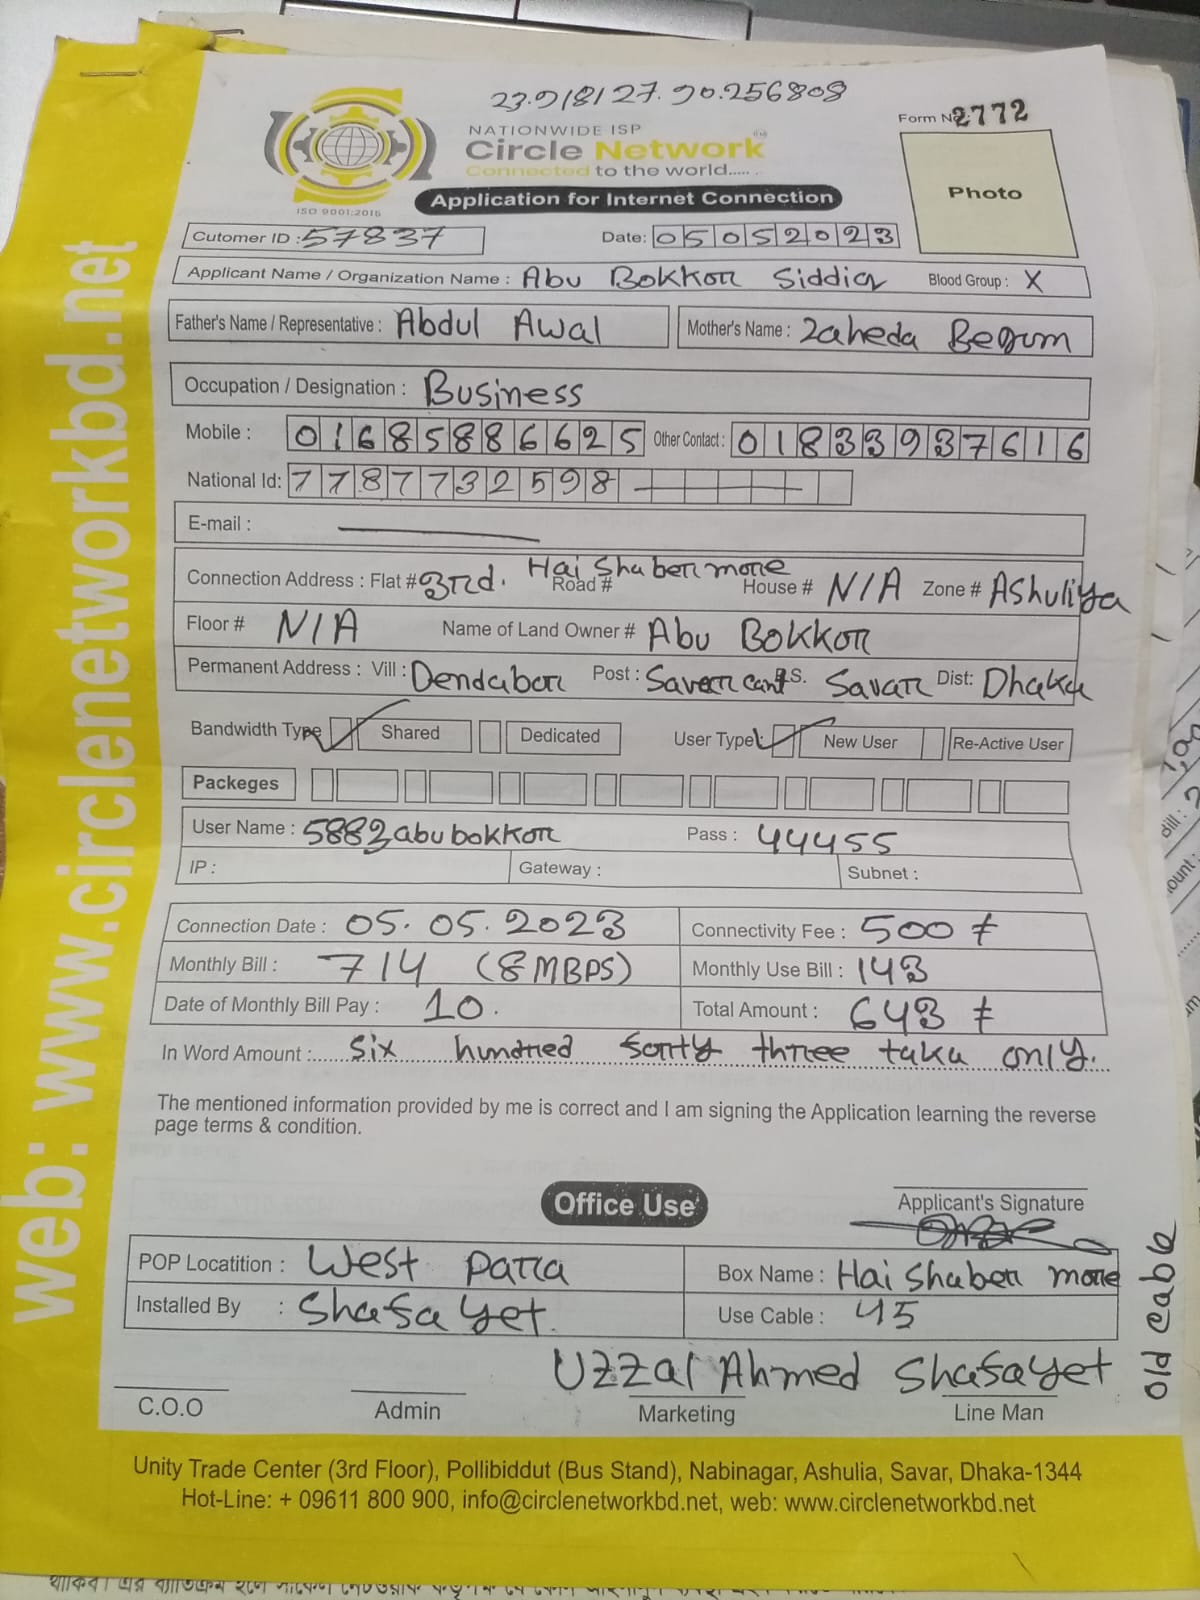 23.918127.90.256808
NATIONWIDE ISP
Circle Network
Connected to the world.....
ISO 9001:2015
Application for Internet Connection
Form No 2772
Photo
Cutomer ID : 57837 Date: 05052023
Applicant Name / Organization Name : Abu Bokkor Siddiq Blood Group : X
Father's Name / Representative : Abdul Awal Mother's Name : Zaheda Begum
Occupation / Designation : Business
Mobile : 01685886625 Other Contact : 01833937616
National Id: 7787732598
E-mail :
Connection Address : Flat # 3rd. Road # Hai Shaber more House # N/A Zone # Ashuliya
Floor # N/A Name of Land Owner # Abu Bokkor
Permanent Address : Vill : Dendabor Post : Savar cant P.S. Savar Dist: Dhaka
Bandwidth Type Shared Dedicated User Type: New User Re-Active User
Packeges
User Name : 5883abubokkor Pass : 44455
IP : Gateway : Subnet :
Connection Date : 05.05.2023 Connectivity Fee : 500 ₮
Monthly Bill : 714 (8MBPS) Monthly Use Bill : 143
Date of Monthly Bill Pay : 10. Total Amount : 643 ₮
In Word Amount :...... six hundred forty three taka only.
The mentioned information provided by me is correct and I am signing the Application learning the reverse
page terms & condition.
Office Use
Applicant's Signature
POP Locatition : West Para Box Name : Hai Shaber more
Installed By : Shafayet Use Cable : 45
old cable
Uzzal Ahmed Shafayet
C.O.O Admin Marketing Line Man
Unity Trade Center (3rd Floor), Pollibiddut (Bus Stand), Nabinagar, Ashulia, Savar, Dhaka-1344
Hot-Line: + 09611 800 900, info@circlenetworkbd.net, web: www.circlenetworkbd.net
web: www.circlenetworkbd.net